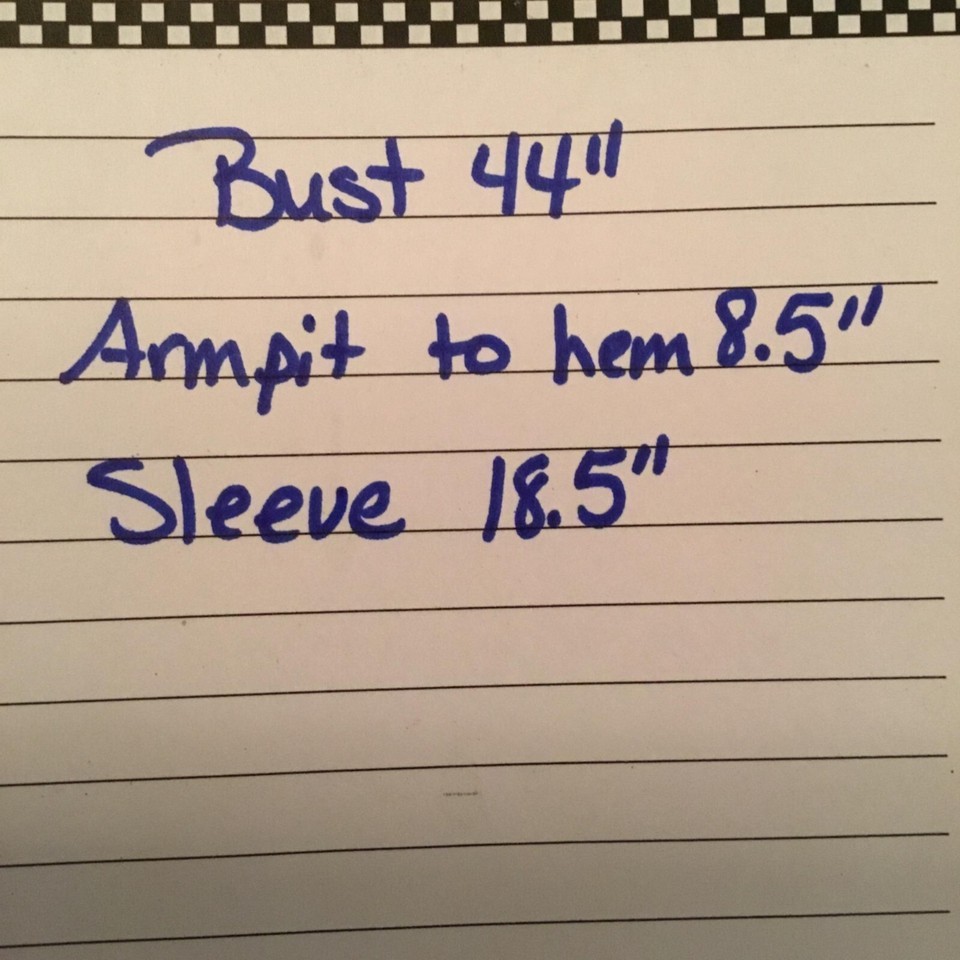 Bust 44"
Armpit to hem 8.5"
Sleeve 18.5"